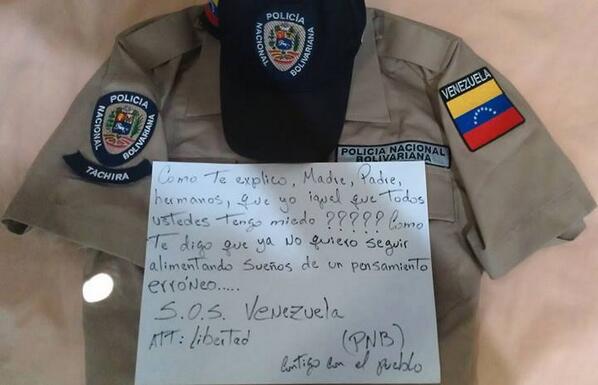 POLICIA
NACIONAL
BOLIVARIANA
POLICIA
NACIONAL
BOLIVARIANA
TÁCHIRA
VENEZUELA
POLICIA NACIONAL
BOLIVARIANA
Como Te explico, Madre, Padre,
humanos, que yo igual que Todos
ustedes Tengo miedo ????? Como
Te digo que ya no quiero seguir
alimentando sueños de un pensamiento
erróneo.....
S.O.S. Venezuela
ATT: Libertad (PNB)
Contigo con el pueblo